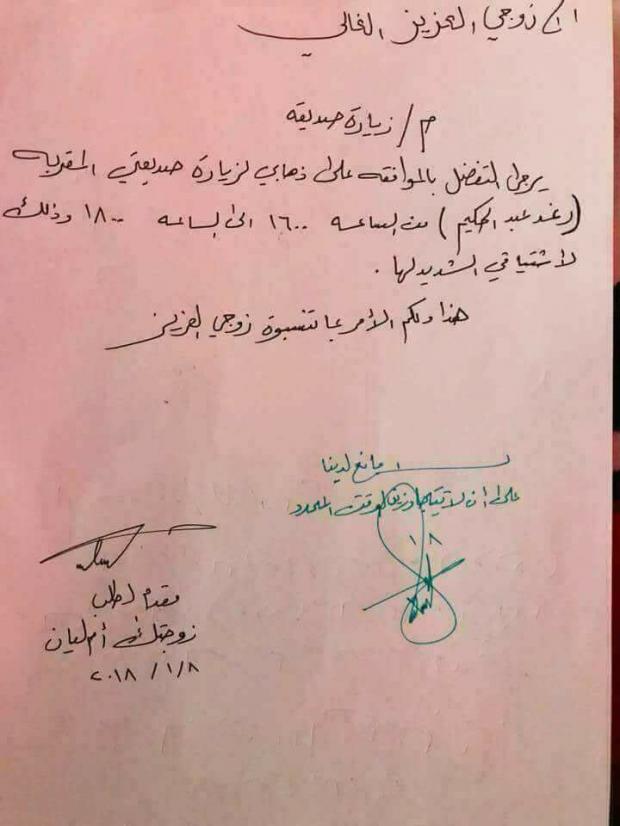 الى زوجي العزيز الغالي
م / زيارة صديقه
يرجى التفضل بالموافقه على ذهابي لزيارة صديقتي المقربه
(رغد عبد الحكيم) من الساعه ١٦٠٠ الى الساعه ١٨٠٠ وذلك
لاشتياقي الشديد لها.
هذا ولكم الأمر بما تنسبوة زوجي العزيز
لا مانع لدينا
على ان لا تتجاوزين الوقت المحدد
١/٨
مقدم الطلب
زوجتك أم ليان
٢٠١٨/١/٨